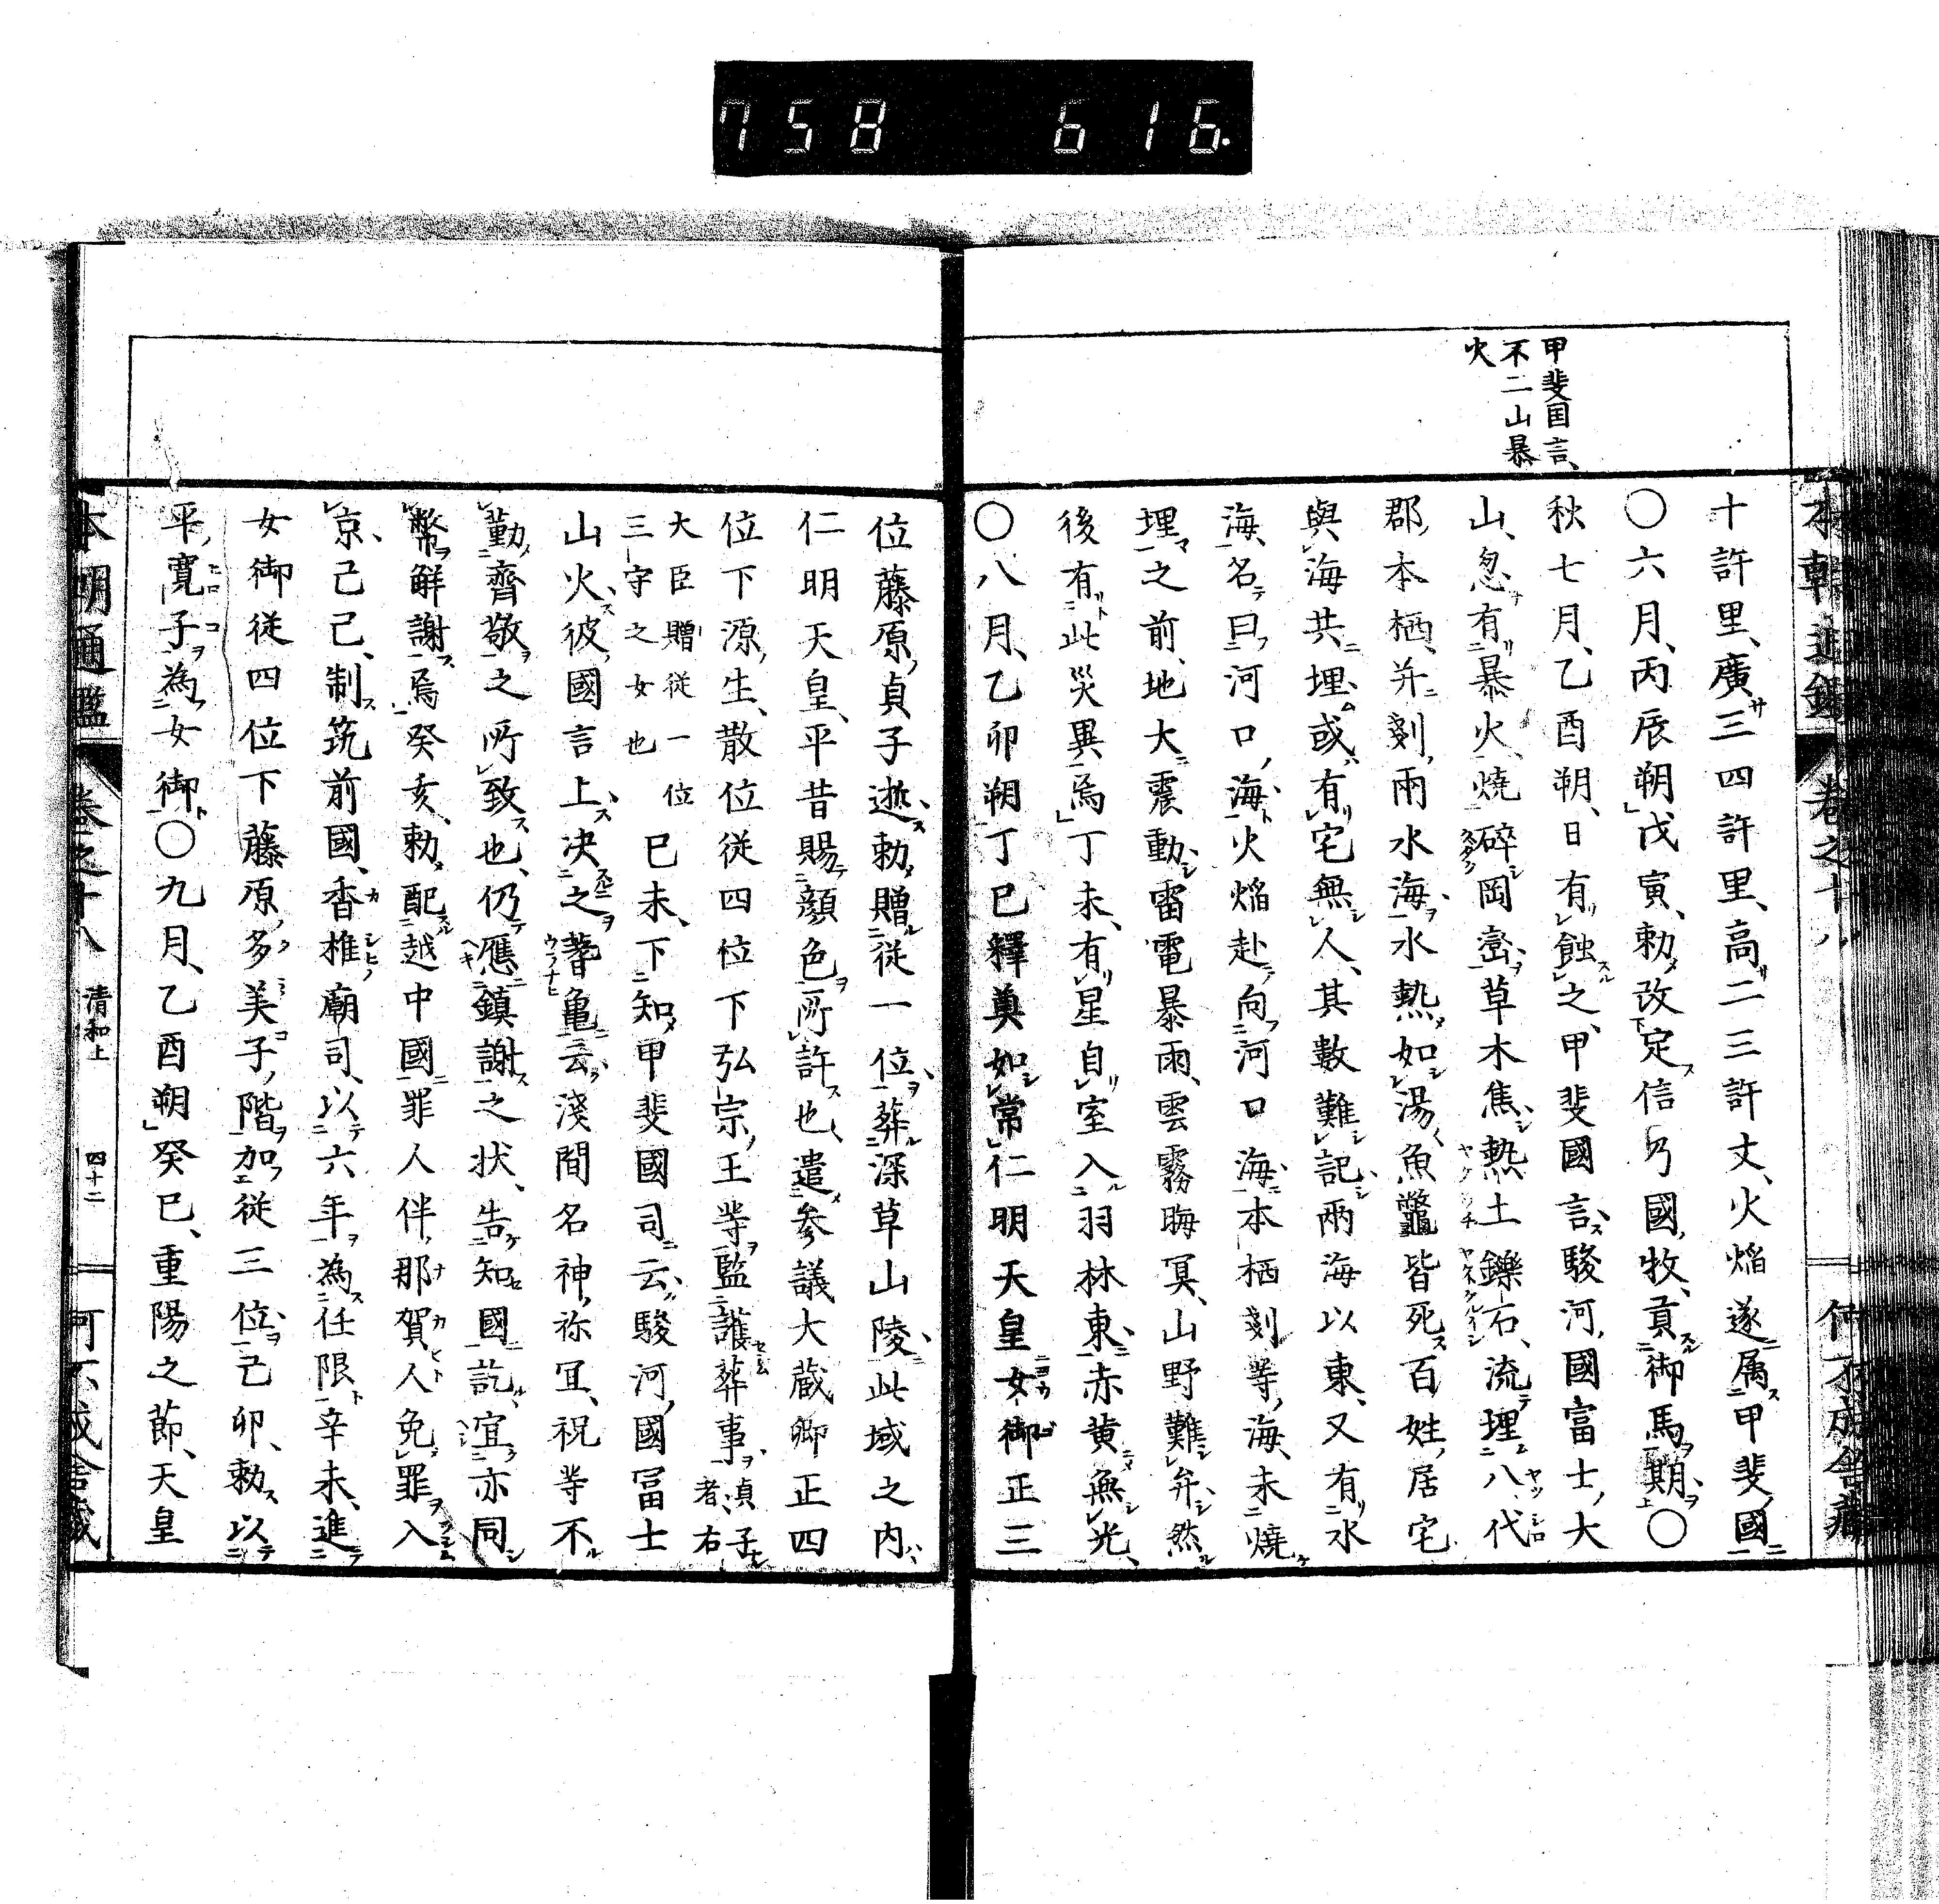 758 616.
甲斐国言、
不二山暴
火
十許里、廣三四許里、高二三許丈、火焔遂属甲斐國
〇六月、丙辰朔」戊寅、勅改定信乃國牧、貢御馬期〇
秋七月、乙酉朔、日有蝕之、甲斐國言、駿河國富士大
山、忽有暴火、燒碎岡巒草木焦熱土鑠石、流埋八代
郡、本栖、并剗、兩水海、水熱如湯、魚鼈皆死、百姓居宅
與海共埋、或有宅無人、其數難記、兩海以東、又有水
海、名曰河口海、火焔赴向河口海、本栖剗等海、未燒
埋之前、地大震動、雷電暴雨、雲霧晦冥、山野難弁、然
後有此災異焉」丁未、有星自室入羽林東、赤黄無光、
〇八月、乙卯朔」丁巳釋奠如常」仁明天皇女御正三
位藤原貞子逝、勅贈從一位、葬深草山陵、此域之内、
仁明天皇、平昔賜顔色所許也、遣参議大蔵卿正四
位下源生、散位従四位下弘宗王等、監護葬事、貞子
者、右
大臣贈従一位
三守之女也
巳未、下知甲斐國司云、駿河國冨士
山火、彼國言上、决之蓍亀云、淺間名神、祢冝、祝等不
勤齊敬之所致也、仍應鎮謝之状、告知國訖、宜亦同
幣觧謝焉」癸亥、勅配越中國罪人伴那賀人免罪入
京、己巳、制筑前國、香椎廟司、以六年為任限、辛未、進
女御従四位下藤原多美子階加従三位、己卯、勅以
平寛子為女御〇九月、乙酉朔」癸巳、重陽之莭、天皇
本朝通鑑
卷之十八
清和上
四十二